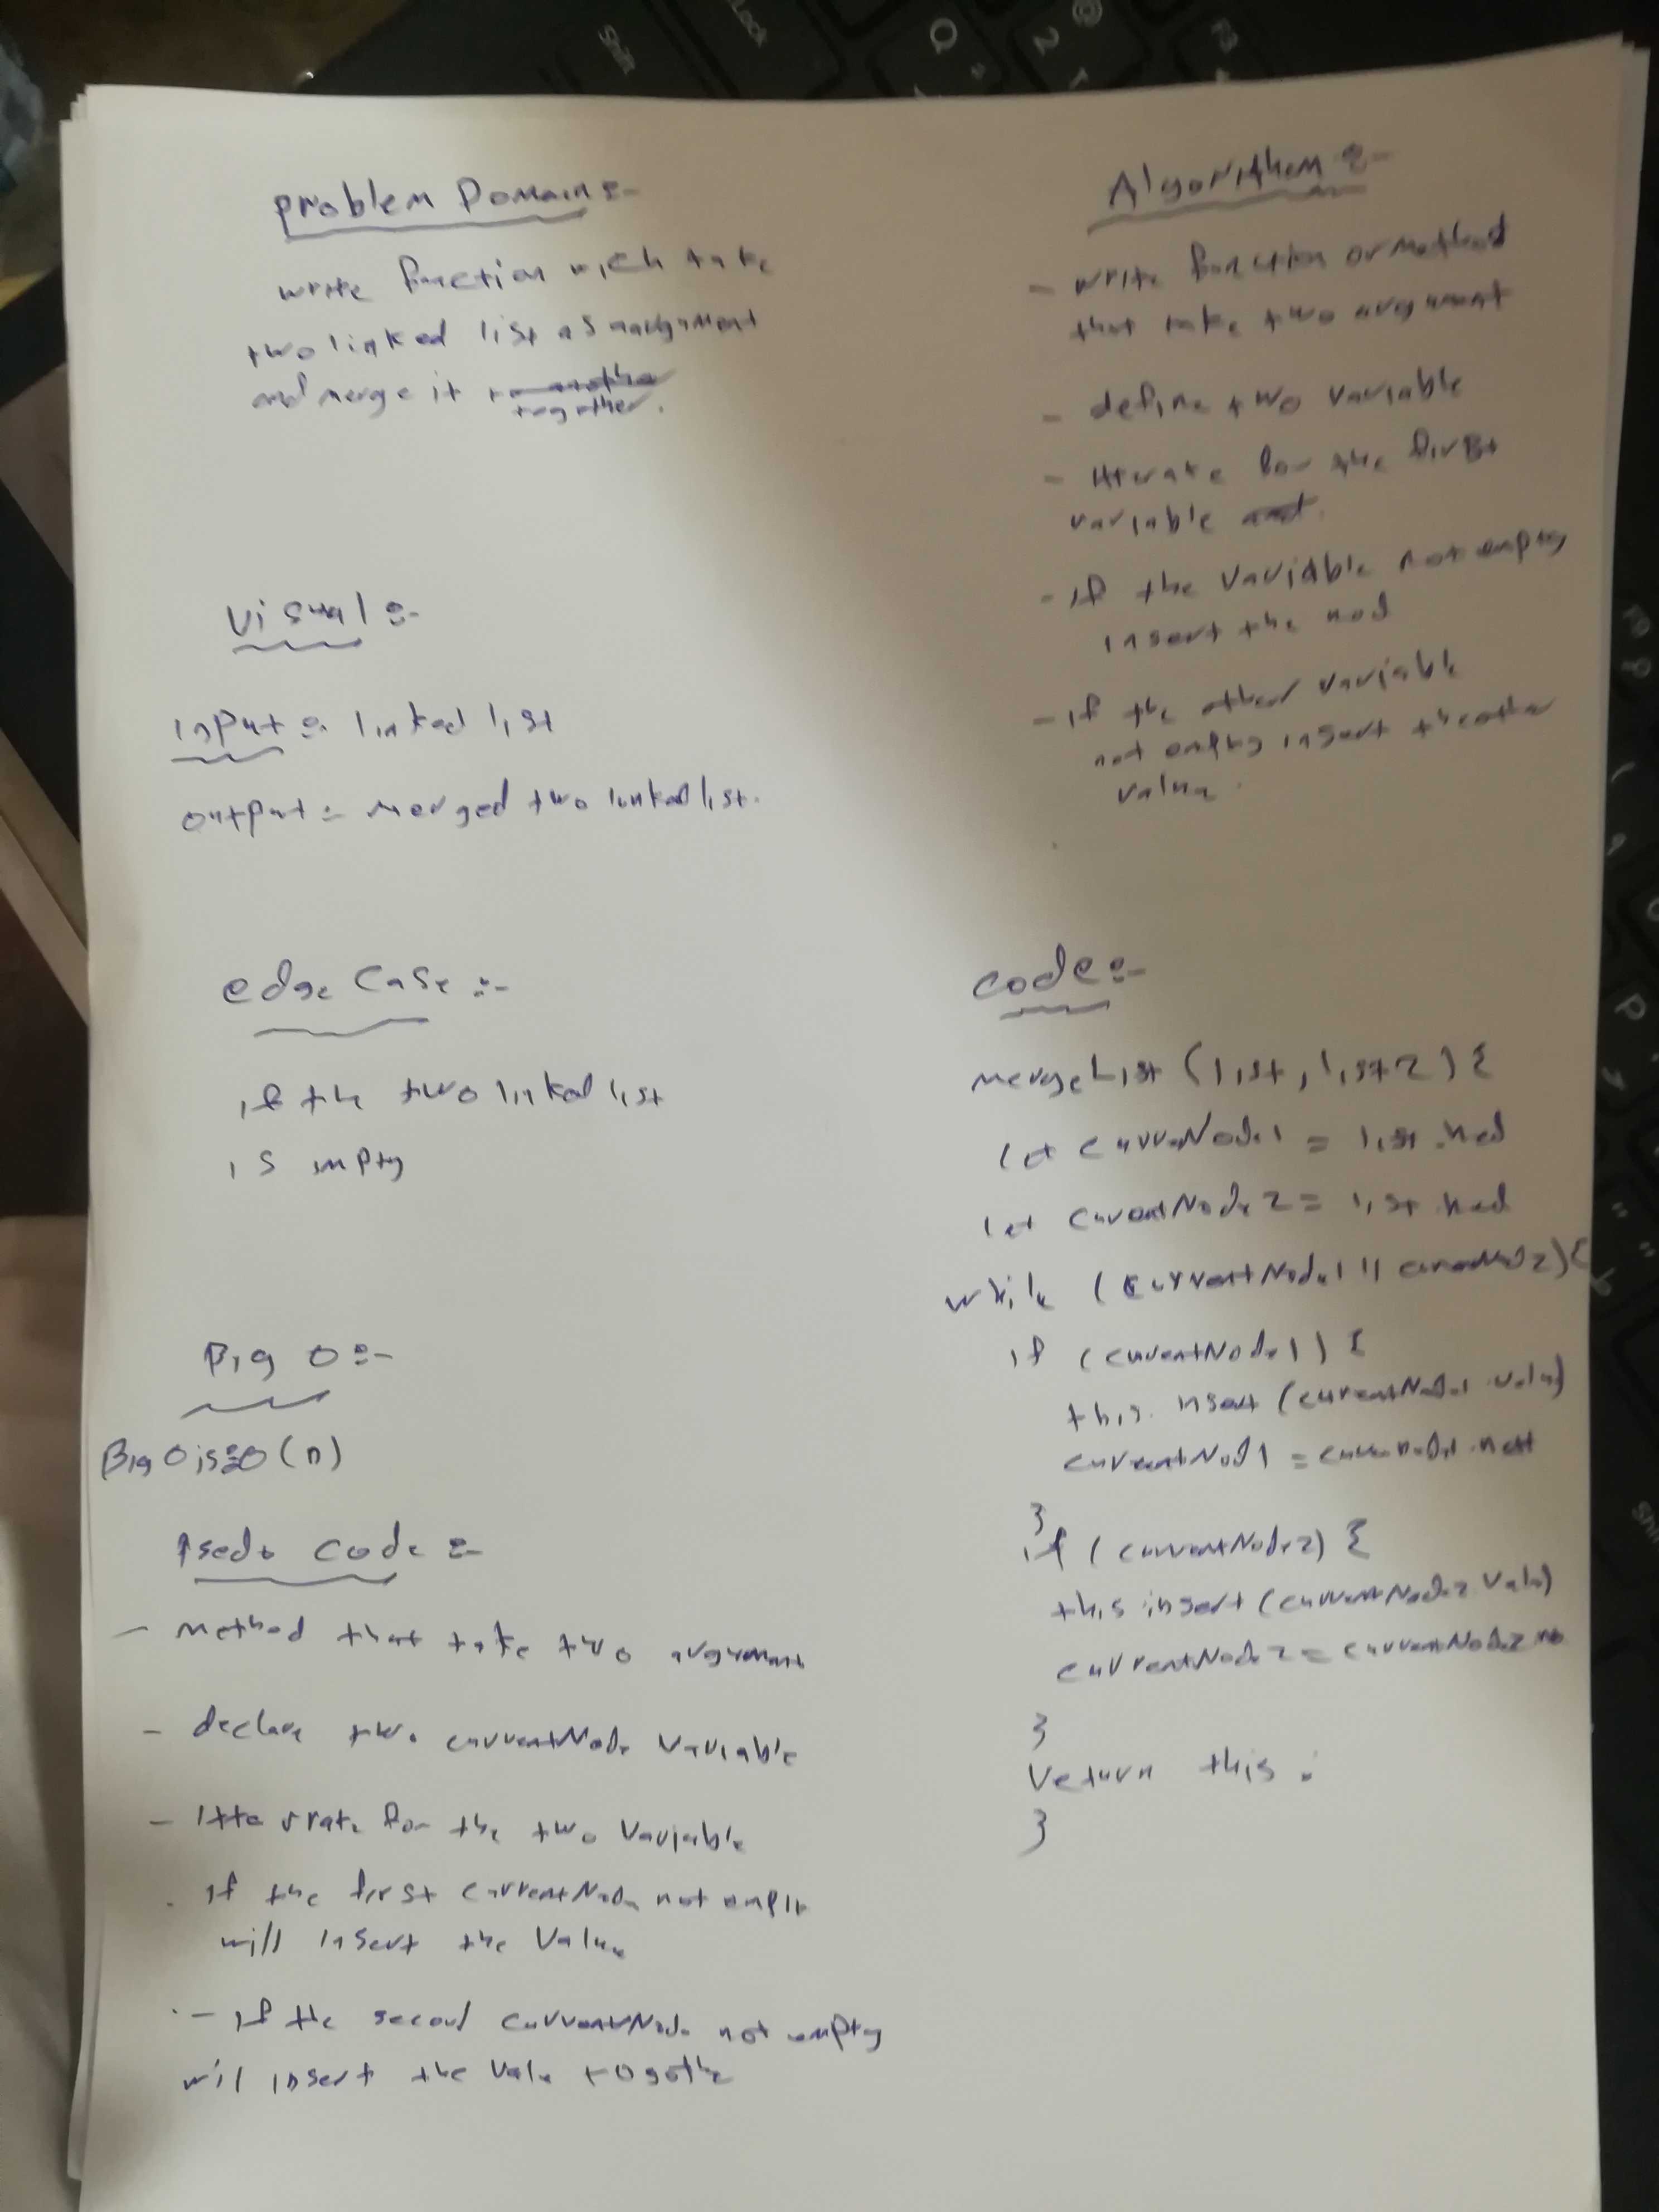 problem Domain :-
write function wich take
two linked list as aurgument
and merge it to another
together.
Visual :-
input :- linked list
output :- merged two linked list.
edge Case :-
if the two linked list
is impty
Big O :-
Big O is :- O(n)
Psedo code :-
- Method that take two argument
- declare two currentNode variable
- Itterate for the two variable
. if the first currentNode not empty
will insert the Value
- if the second currentNode not empty
will insert the Value
Algorithem :-
- write function or method
that take two argument
- define two variable
- Iterate for the first
variable and.
- if the variable not empty
insert the nod
- if the other variable
not empty insert the other
value.
code :-
mergeList (list, list2) {
let currentNode1 = list.hed
let currentNode2 = list.hed
while (currentNode1 || currentNode2) {
if (currentNode1) {
this. insert (currentNode1.value)
currentNod1 = currentNode1.next
}
if (currentNode2) {
this insert (currentNode2 Value)
currentNode2 = currentNode2
}
return this ;
}
Shift
Lock
Q
@
2
F3
P